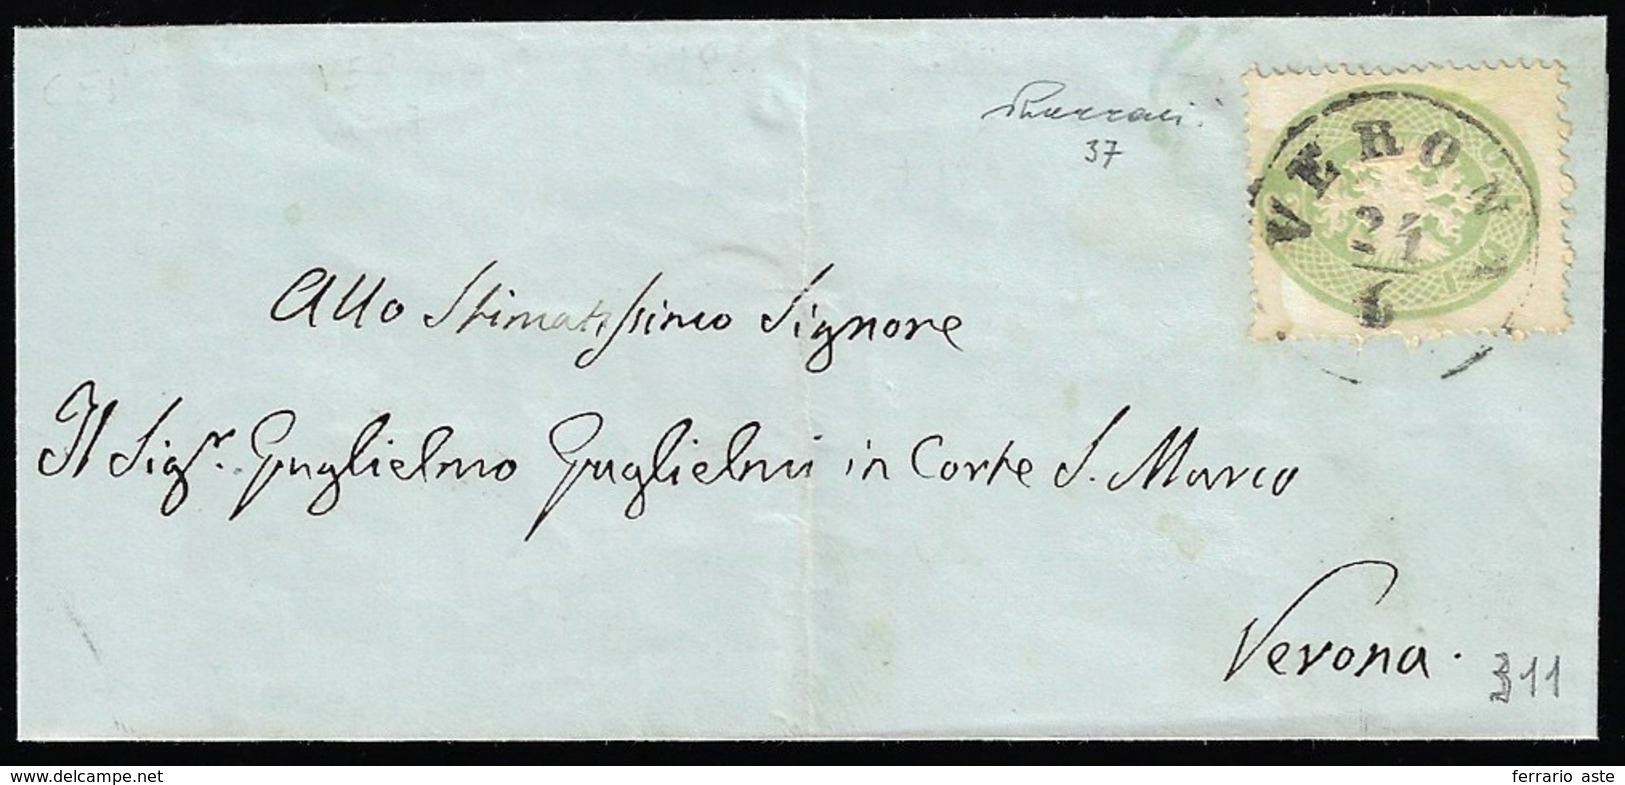 37
VERONA
21
6
Allo Stimatissimo Signore
Il Sigr. Guglielmo Guglielmi in Corte S. Marco
Verona.
311
www.delcampe.net
ferrario aste